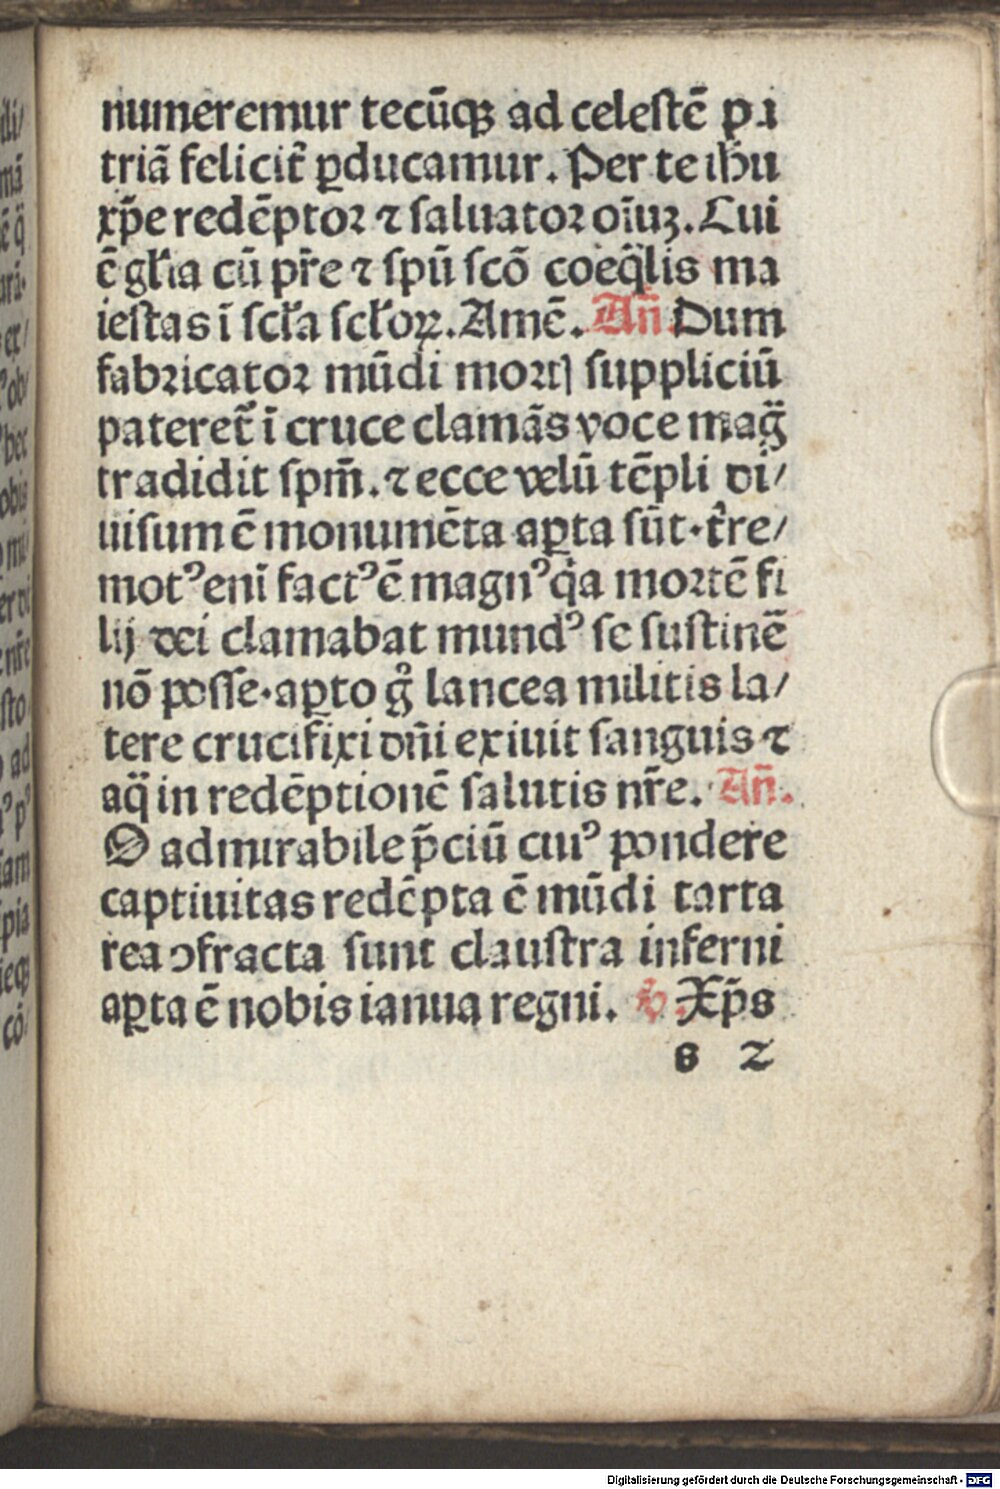 numeremur tecūqꝫ ad celestē pa
triā felicit̄ ꝑducamur. Per te ihu
xp̄e redēptoꝛ ⁊ saluatoꝛ oīuꝫ. Cui
ē gl̄ia cū pr̄e ⁊ spū scō coeq̄lis ma
iestas ī scl̄a scl̄oꝝ. Amē. An̄. Dum
fabꝛicatoꝛ mūdi moꝛtꝭ suppliciū
pateret̄ ī cruce clamās voce mag̈
tradidit spm̄. ⁊ ecce velū tēpli di/
uisum ē monumēta aꝑta sūt. t̄re/
motꝰ eni factꝰ ē magnꝰ qͥa moꝛtē fi
lij dei clamabat mundꝰ se sustinē
nō posse. aꝑto gͦ lancea militis la/
tere crucifixi dn̄i exiuit sanguis ⁊
aq̈ in redēptionē salutis nr̄e. An̄.
O admirabile p̄ciū cuiꝰ pondere
captiuitas redēpta ē mūdi tarta
rea ꝯfracta sunt claustra inferni
aꝑta ē nobis ianua regni. Xp̄s
s 2
Digitalisierung gefördert durch die Deutsche Forschungsgemeinschaft - DFG